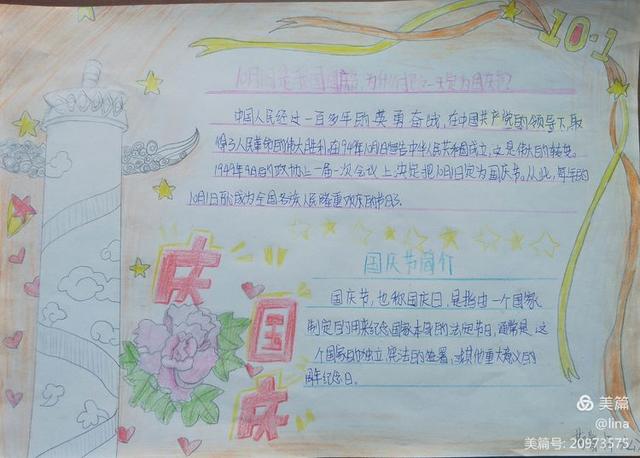 10·1
10月1日是我国国庆节,为什么把这一天定为国庆节?
中国人民经过一百多年的英勇奋战,在中国共产党的领导下,取
得了人民革命的伟大胜利,在1949年10月1日宣告中华人民共和国成立,这是伟大的转变。
1949年9月的政协上一届一次会议上,决定把10月1日定为国庆节。从此,每年的
10月1日形成为全国各族人民隆重欢庆的节日了。
国庆节简介
国庆节,也称国庆日,是指由一个国家
制定的用来纪念国家本身的法定节日,通常是这
个国家的独立、宪法的签署、或其他重大意义的
周年纪念日。
庆
国
庆
美篇
@lina
美篇号: 20973575